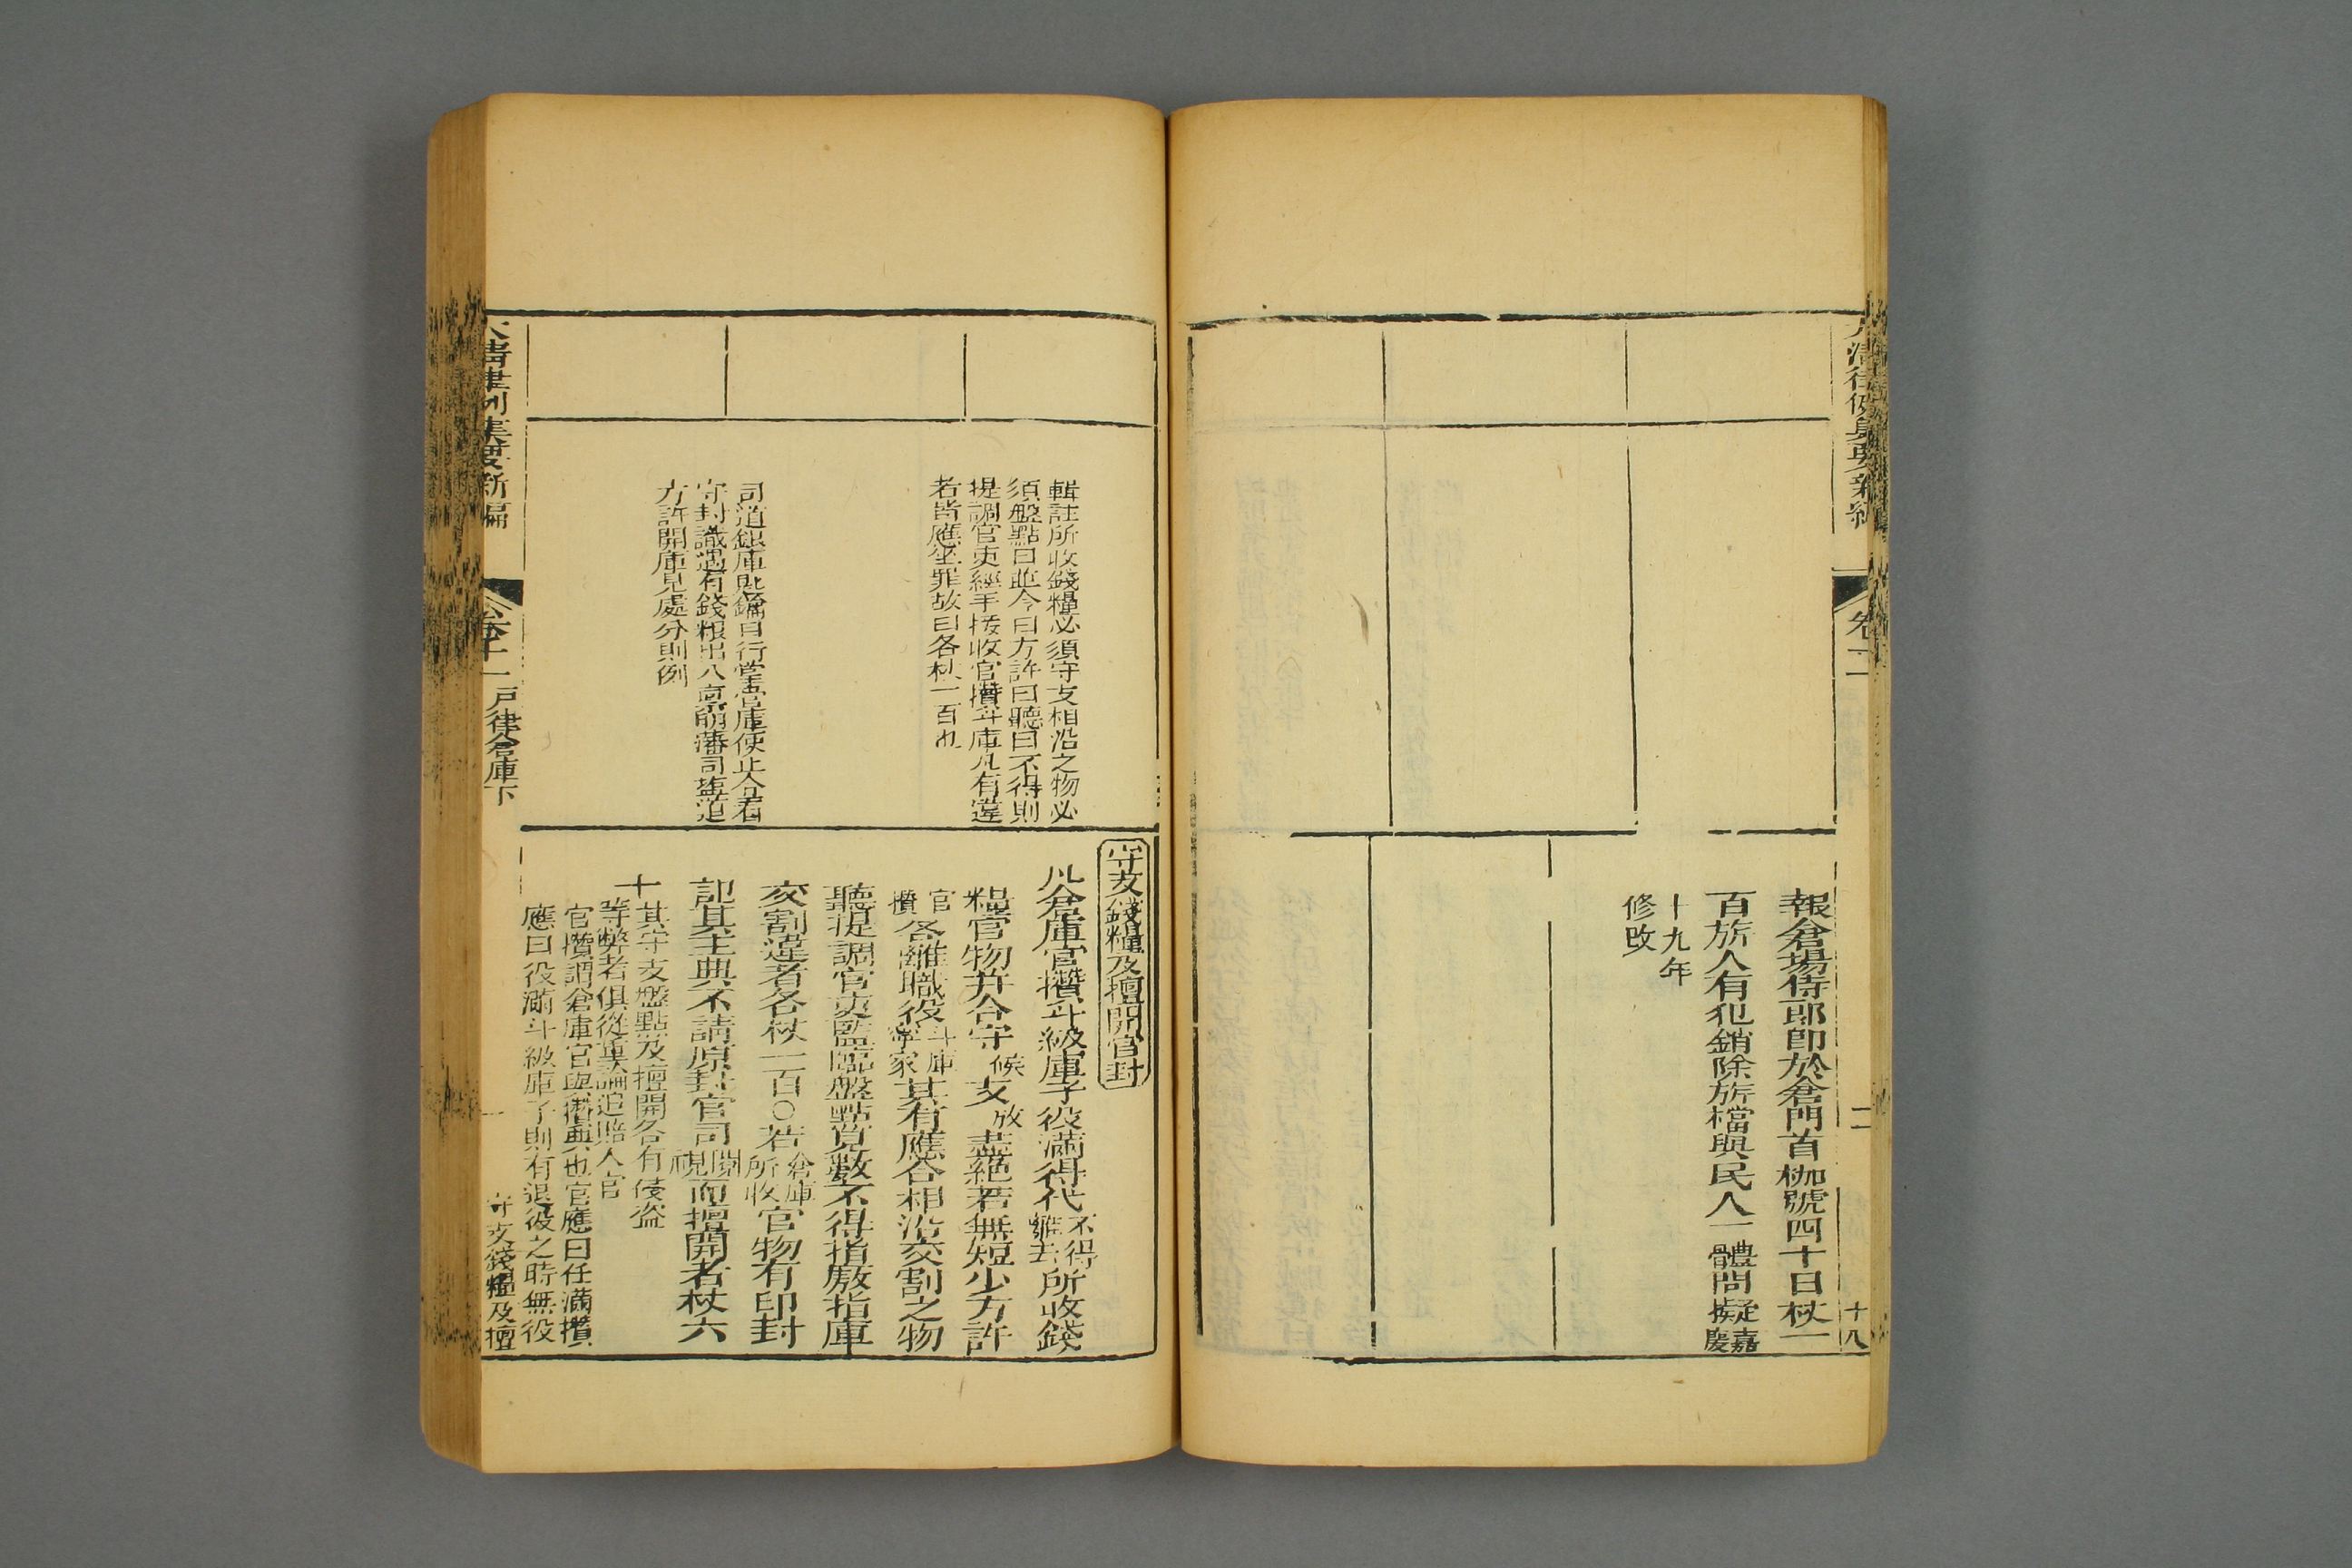 報倉場侍郎卽於倉門首枷號四十日杖一
百旂人有犯銷除旂檔與民人一體問擬嘉慶
十九年
修改
十八
輯註所收錢糧必須守支相沿之物必
須盤點曰並令曰方許曰聽曰不得則
提調官吏經手接收官攢斗庫凡有違
者皆應坐罪故曰各杖一百也
司道銀庫匙鑰自行掌管庫使止令看
守封識遇有錢粮出入稟明藩司塩道
方許開庫見處分則例
守支錢糧及擅開官封
凡倉庫官攢斗級庫子役滿得代不得離去所收錢
糧官物幷令守候支放盡絕若無短少方許
官攢各離職役斗庫寧家其有應合相沿交割之物
聽提調官吏監臨盤點見數不得指厫指庫
交割違者各杖一百○若倉庫所收官物有印封
記其主典不請原封官司閱視而擅開者杖六
十其守支盤點及擅開各有侵盜
等弊者俱從重論追賠入官
官攢謂倉庫官與攢典也官應曰任滿攢
應曰役滿斗級庫子則有退役之時無役
大清律例集要新編
卷十一
戶律倉庫下
守支錢糧及擅